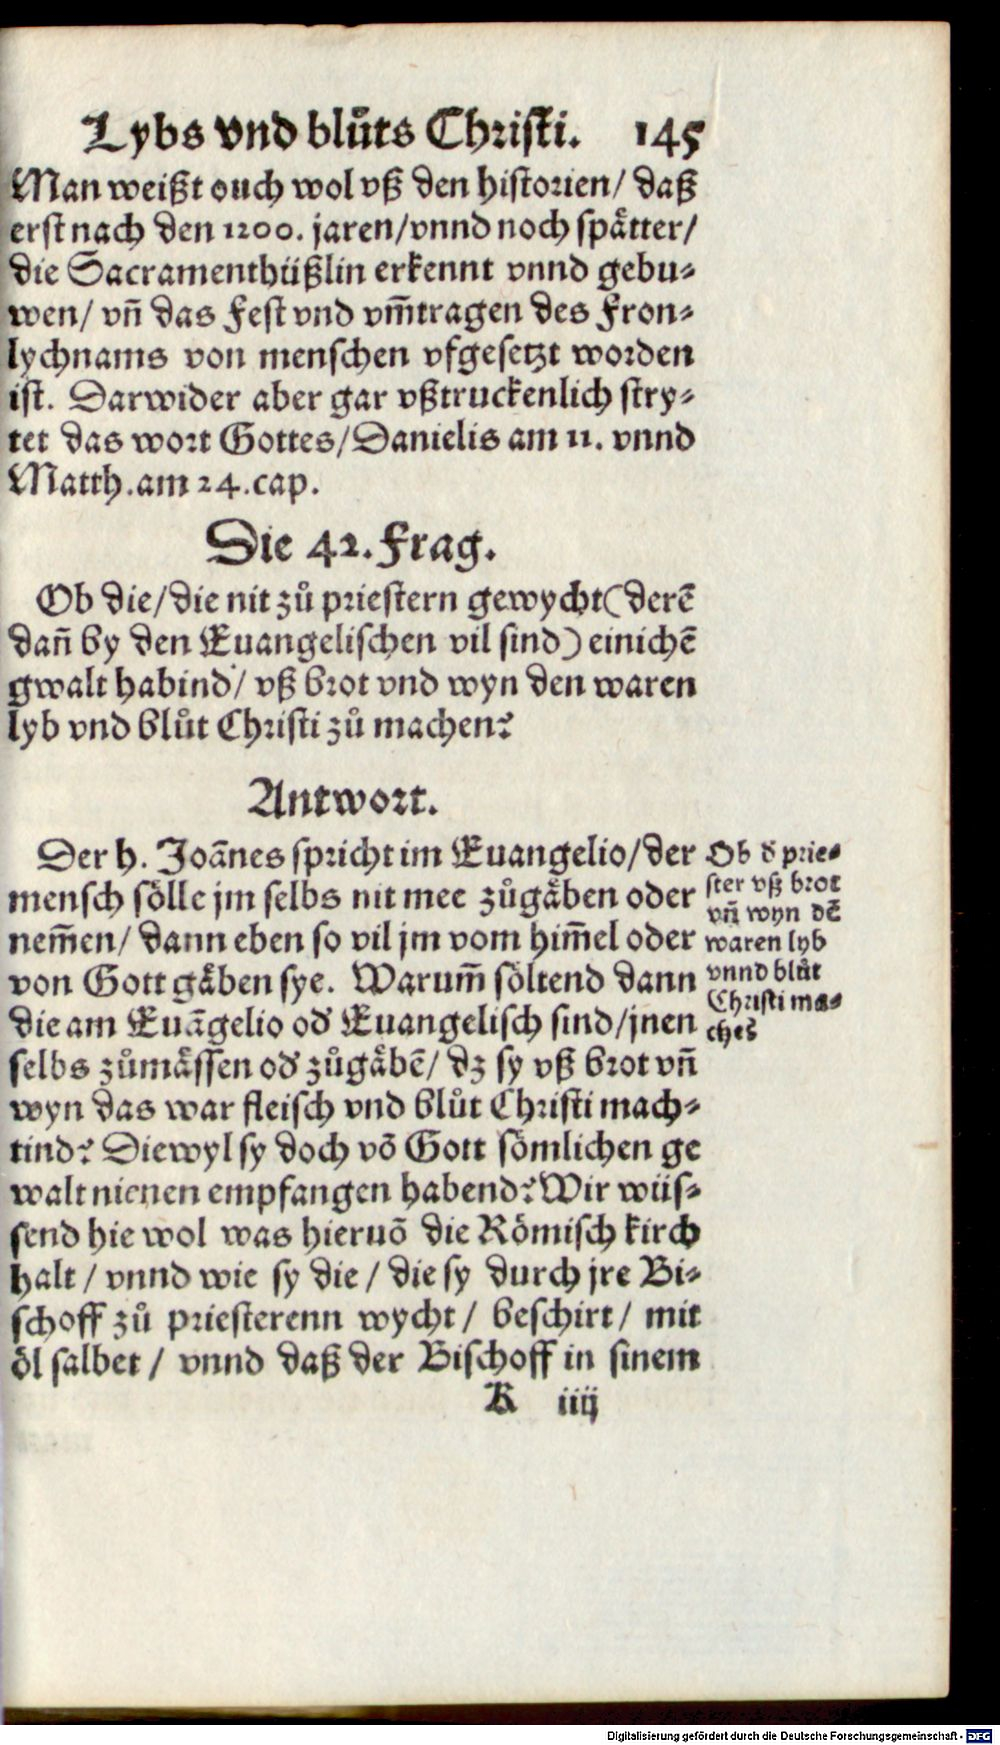 Lybs vnd blůts Christi. 145
Man weißt ouch wol vß den historien/ daß
erst nach den 1200. jaren/vnnd noch spåtter/
die Sacramenthüßlin erkennt vnnd gebu⸗
wen/ vñ das Fest vnd vm̃tragen des Fron⸗
lychnams von menschen vfgesetzt worden
ist. Darwider aber gar vßtruckenlich stry⸗
tet das wort Gottes/Danielis am 11. vnnd
Matth.am 24.cap.
Die 42. Frag.
Ob die/die nit zů priestern gewycht(derē
dañ by den Euangelischen vil sind) einichē
gwalt habind/ vß brot vnd wyn den waren
lyb vnd blůt Christi zů machen?
Antwort.
Der h. Joãnes spricht im Euangelio/der
mensch sölle jm selbs nit mee zůgåben oder
nem̃en/ dann eben so vil jm vom him̃el oder
von Gott gåben sye. Warum̃ söltend dann
die am Euãgelio od' Euangelisch sind/jnen
selbs zůmåssen od' zůgåbē/ dz sy vß brot vñ
wyn das war fleisch vnd blůt Christi mach⸗
tind? Diewyl sy doch võ Gott sömlichen ge
walt nienen empfangen habend? Wir wüs⸗
send hie wol was hieruõ die Römisch kirch
halt/ vnnd wie sy die/ die sy durch jre Bi⸗
schoff zů priesterenn wycht/ beschirt/ mit
öl salbet/ vnnd daß der Bischoff in sinem
K iiij
Ob d' prie⸗
ster vß brot
vñ wyn dē
waren lyb
vnnd blůt
Christi ma⸗
che?
Digitalisierung gefördert durch die Deutsche Forschungsgemeinschaft - DFG